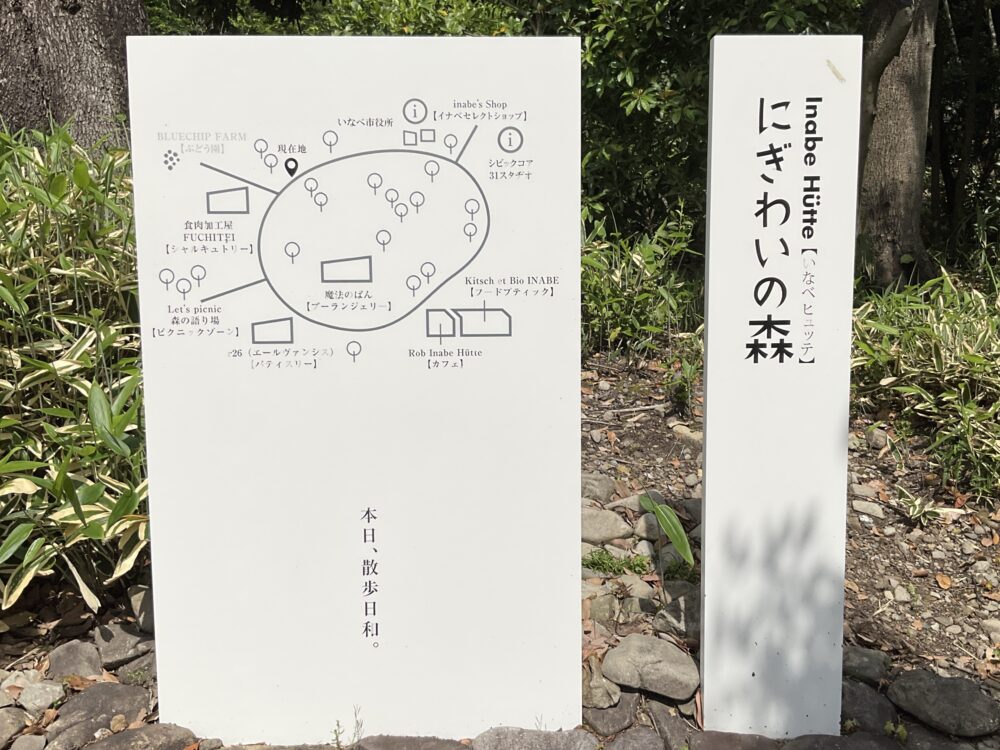 BLUECHIP FARM
【ぶどう園】
現在地
いなべ市役所
i
inabe's Shop
【イナベセレクトショップ】
i
シビックコア
31スタヂオ
食肉加工屋
FUCHITEI
【シャルキュトリー】
Let's picnic
森の語り場
【ピクニックゾーン】
魔法のぱん
【ブーランジェリー】
Kitsch et Bio INABE
【フードブティック】
r26（エールヴァンシス）
【パティスリー】
Rob Inabe Hütte
【カフェ】
本日、散歩日和。
Inabe Hütte【いなべヒュッテ】
にぎわいの森